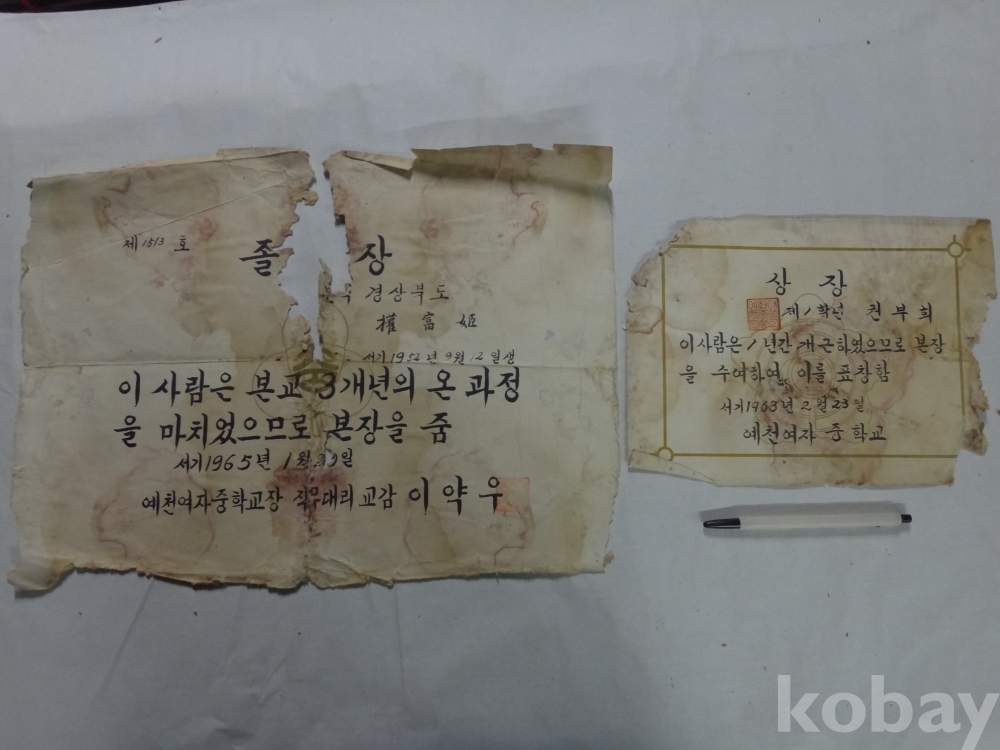 제1513호
졸 장
경상부도
權富姬
서기1952년 9월 12일생
이 사람은 본교 3개년의 온 과정
을 마치었으므로 본장을 줌
서기1965년 1월 일
예천여자중학교장 직무대리 교감 이약우
상장
제1학년 권부희
이사람은 1년간 개근하였으므로 본장
을 수여하여 이를 표창함
서기1963년 2월 23일
예천여자중학교
kobay